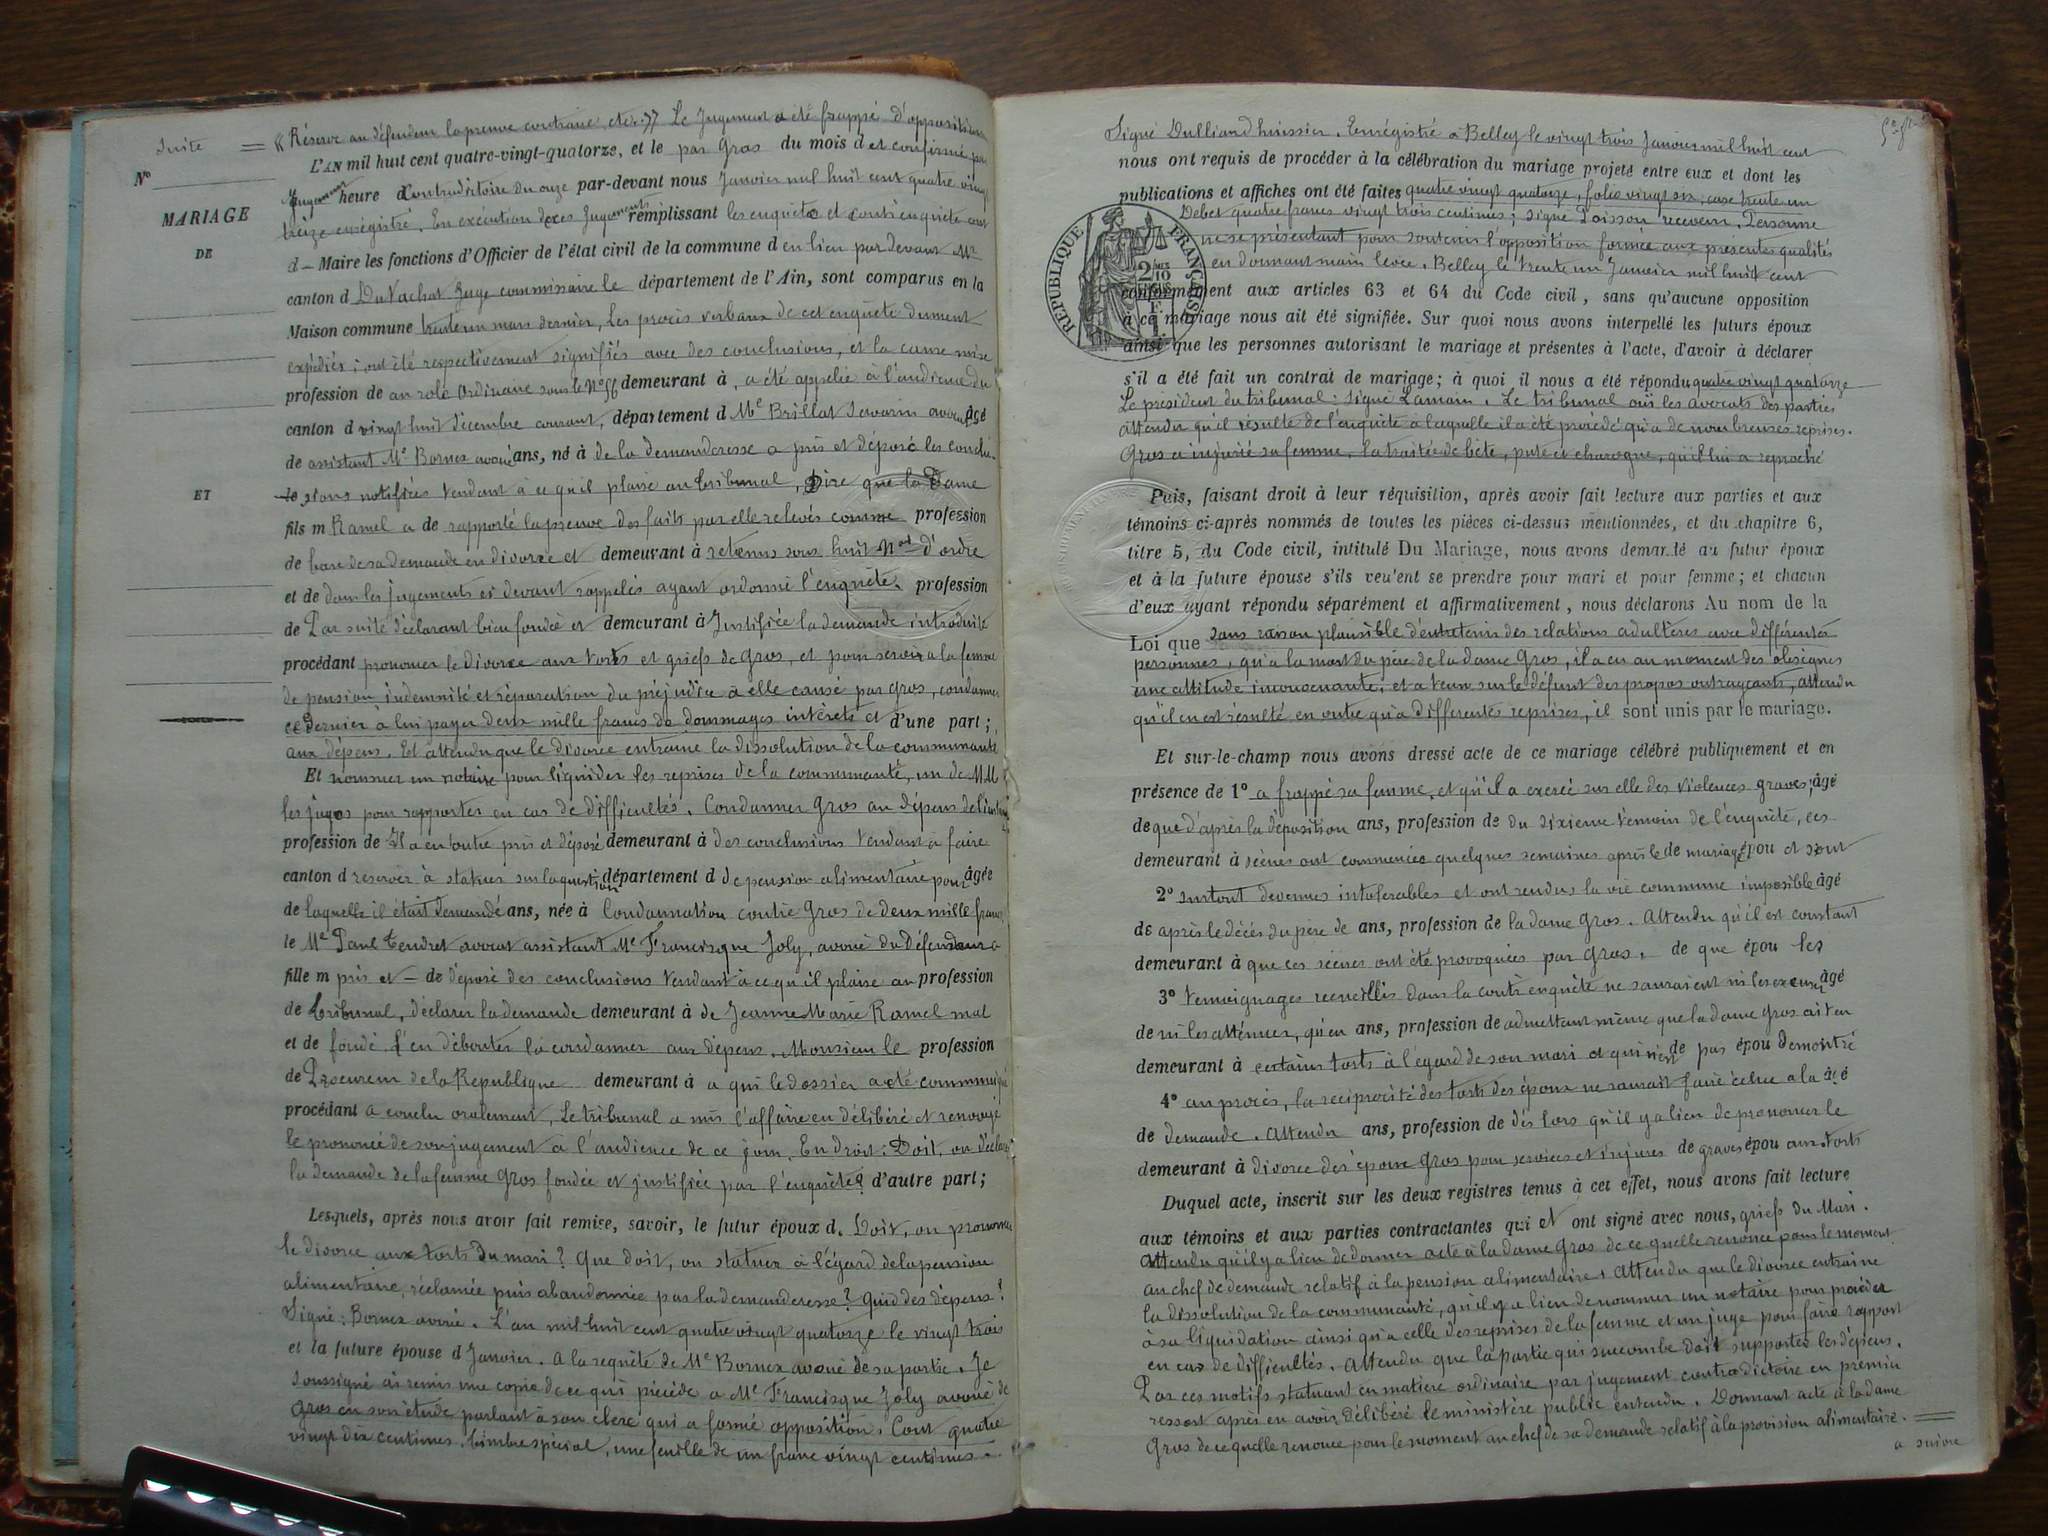 Suite = « Réserve au défendeur la preuve contraire etc. » Le Jugement a été frappé d'opposition
L'AN mil huit cent quatre-vingt-quatorze, et le par Gros du mois d et confirmé par
N°
Jugement heure contradictoire du onze par-devant nous Janvier mil huit cent quatre vingt
MARIAGE
treize enregistré. En exécution de ces Jugements remplissant les enquête et contr'enquête ont
DE
d – Maire les fonctions d'Officier de l'état civil de la commune d eu lieu par devant Mr
canton d Du Vachat Juge commissaire le département de l'Ain, sont comparus en la
Maison commune trente un mars dernier, Les procès verbaux de cet enquête dument
expédiés ; ont été respectivement signifiés avec des conclusions, et la cause mise
profession de au rôle Ordinaire sous le N° 56 demeurant à , a été appelée à l'audience du
canton d vingt huit Décembre courant, département d Me Brillat Savarin avocat âgé
de assistant Me Bornex avoué ans, né à de la demanderesse a pris et déposé les conclu-
ET
le sions notifiées tendant à ce qu'il plaise au tribunal, Dire que la Dame
fils m Ramel a de rapporté la preuve des faits par elle relevés comme profession
de base de sa demande en divorce et demeurant à retenus sous huit Nos d'ordre
et de dans les jugements ci devant rappelés ayant ordonné l'enquête. profession
de Par suite déclarant bien fondée et demeurant à Justifiée la demande introduite
procédant prononcer le divorce aux torts et griefs de Gros, et pour servir a la femme
de pension indemnité et réparation du préjudice à elle causé par Gros, condamner
ce Dernier à lui payer deux mille francs de dommages intérêts et d'une part ;
aux dépens. Et attendu que le divorce entraîne la dissolution de la communauté
Et nommer un notaire pour liquider les reprises de la communauté, un de MM
les juges pour rapporter en cas de difficultés. Condamner Gros au dépens de l'instance
profession de Il a en outre pris et déposé demeurant à des conclusions tendant à faire
canton d réserver à statuer sur la question département d de pension alimentaire pour âgée
de laquelle il était demandé ans, née à Condamnation contre Gros de deux mille francs
le Me Paul Tendret avocat assistant Me Francisque Joly, avoué du Défendeur a
fille m pris et – de déposé des conclusions tendant à ce qu'il plaise au profession
de tribunal, déclarer la demande demeurant à de Jeanne Marie Ramel mal
et de fondé l'en débouter la condamner aux dépens. Monsieur le profession
de Procureur de la République demeurant à a qui le dossier a été communiqué
procédant a conclu oralement, Le tribunal a mis l'affaire en délibéré et renvoyé
le prononcé de son jugement à l'audience de ce jour. En droit : Doit, on déclarer
la demande de la femme Gros fondée et justifiée par l'enquête ? d'autre part ;
Lesquels, après nous avoir fait remise, savoir, le futur époux d. Doit, on prononcer
le divorce aux torts du mari ? Que doit, on statuer à l'égard de la pension
alimentaire, réclamée puis abandonnée par la demanderesse ? Quid des dépens ?
Signé : Bornex avoué. L'an mil huit cent quatre vingt quatorze le vingt trois
et la future épouse d Janvier. A la requête de Me Bornex avoué de sa partie. Je
soussigné ai remis une copie de ce qui précède a Me Francisque Joly avoué de
Gros en son étude parlant à son clerc qui a formé opposition. Cout quatre
vingt dix centimes. timbre spécial, une feuille de un franc vingt centimes.
Signé Dulliand huissier. Enregistré à Belley le vingt trois Janvier mil huit cent
nous ont requis de procéder à la célébration du mariage projeté entre eux et dont les
publications et affiches ont été faites quatre vingt quatorze, folio vingt six, case trente un
Debet quatre francs vingt trois centimes ; signé Poisson receveur, Personne
ne se présentant pour soutenir l'opposition formée aux présentes qualités
en donnant main levée. Belley le trente un Janvier mil huit cent
RÉPUBLIQUE FRANÇAISE
conformément aux articles 63 et 64 du Code civil, sans qu'aucune opposition
à ce mariage nous ait été signifiée. Sur quoi nous avons interpellé les futurs époux
ainsi que les personnes autorisant le mariage et présentes à l'acte, d'avoir à déclarer
s'il a été fait un contrat de mariage ; à quoi il nous a été répondu quatre vingt quatorze
Le président du tribunal : signé Lamain. Le tribunal ouï les avocats des parties
attendu qu'il résulte de l'enquête à laquelle il a été procédé qu'a de nombreuses reprises.
Gros a injurié sa femme, la traitée de bête, pute et charogne, qu'il lui a reproché
Puis, faisant droit à leur réquisition, après avoir fait lecture aux parties et aux
témoins ci-après nommés de toutes les pièces ci-dessus mentionnées, et du chapitre 6,
titre 5, du Code civil, intitulé Du Mariage, nous avons demandé au futur époux
et à la future épouse s'ils veulent se prendre pour mari et pour femme ; et chacun
d'eux ayant répondu séparément et affirmativement, nous déclarons Au nom de la
Loi que sans raison plausible d'entretenir des relations adultères avec différentes
personnes, qu'à la mort du père de la dame Gros, il a eu au moment des obsèques
une attitude inconvenante, et a tenu sur le défunt des propos outrageants, attendu
qu'il en est résulté en outre qu'a différentes reprises, il sont unis par le mariage.
Et sur-le-champ nous avons dressé acte de ce mariage célébré publiquement et en
présence de 1° a frappé sa femme, et qu'il a exercé sur elle des violences graves ; âgé
de que d'après la déposition ans, profession de du sixième témoin de l'enquête, ces
demeurant à scènes ont commencée quelques semaines après le de mariage épou et sont
2° surtout devenues intolérables et ont rendus la vie commune impossible âgé
de après le décès du père de ans, profession de la dame Gros. Attendu qu'il est constant
demeurant à que ces scènes ont été provoquées par Gros, de que épou les
3° témoignages recueillis dans la contr'enquête ne sauraient ni les excuser âgé
de ni les atténuer, qu'en ans, profession de admettant même que la dame Gros ait eu
demeurant à certains torts à l'égard de son mari et qui n'est de pas épou démontré
4° au procès, la réciprocité des torts des époux ne saurait faire échec a la âgé
de demande. Attendu ans, profession de dès lors qu'il y a lieu de prononcer le
demeurant à divorce des époux Gros pour sévices et injures de graves épou aux torts
Duquel acte, inscrit sur les deux registres tenus à cet effet, nous avons fait lecture
aux témoins et aux parties contractantes qui et ont signé avec nous, griefs du Mari.
Attendu qu'il y a lieu de donner acte à la dame Gros de ce quelle renonce pour le moment
au chef de demande relatif à la pension alimentaire. Attendu que le divorce entraîne
la dissolution de la communauté, qu'il y a lieu de nommer un notaire pour procéder
à sa liquidation ainsi qu'a celle des reprises de la femme et un juge pour faire rapport
en cas de difficultés. Attendu que la partie qui succombe doit supporter les dépens.
Par ces motifs statuant en matière ordinaire par jugement contradictoire en premier
ressort après en avoir délibéré le ministère public entendu. Donnant acte à la dame
Gros de ce quelle renonce pour le moment au chef de sa demande relatif à la provision alimentaire. =
a suivre